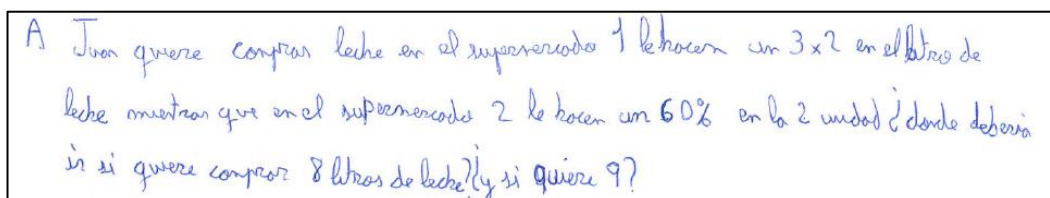 A Juan quiere comprar leche en el supermercado 1 le hacen un 3x2 en el litro de
leche mientras que en el supermercado 2 le hacen un 60% en la 2 unidad ¿donde deberia
ir si quiere comprar 8 litros de leche? ¿y si quiere 9?